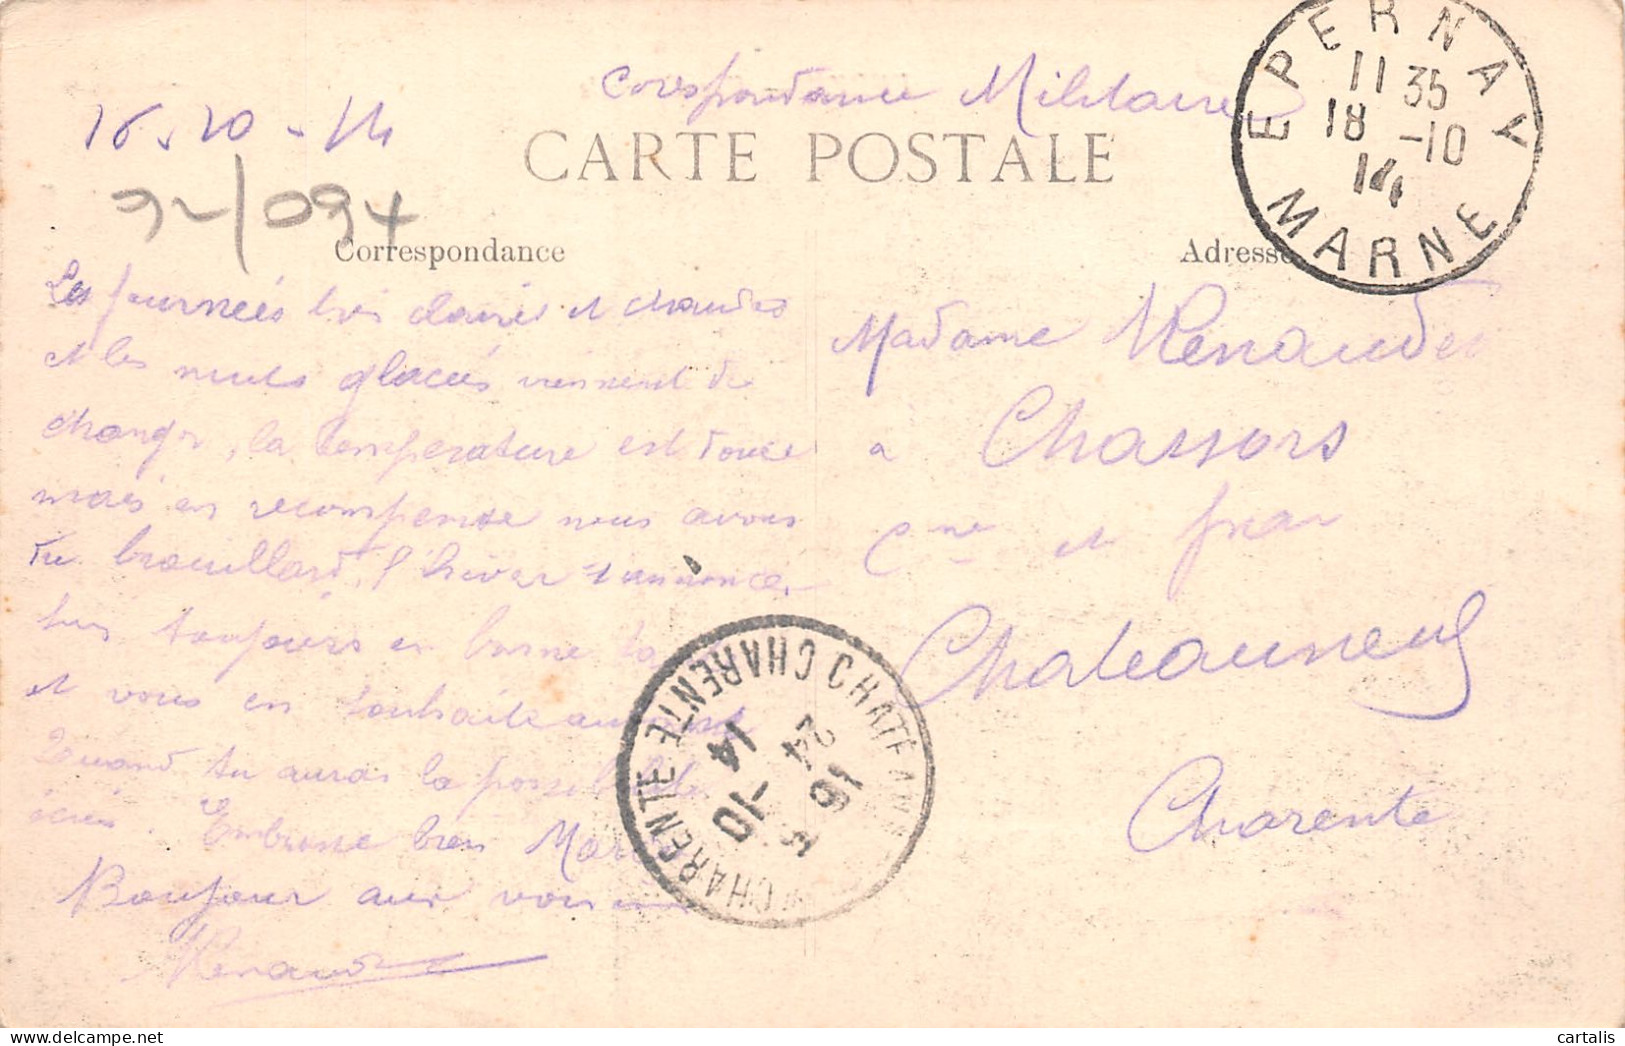 Corespondance Militaire
16 . 10 - 14
CARTE POSTALE
EPERNAY
11 35
18 -10
14
MARNE
Correspondance
Adresse
Les journées très claires et chaudes
et les nuits glacées viennent de
changer, la température est douce
mais en recompense nous avons
du brouillard, l'hiver s'annonce,
suis toujours en bonne
et vous en souhaite autant
Quand tu auras la possibilité
écris. Embrasse bien
Bonjour aux voisins
Madame Renaudet
a Chassors
Cne et par
Chateauneuf
Charente
CHATEAUN
CHARENTE
16 24
5 -10
14
CHARENTE
cartalis